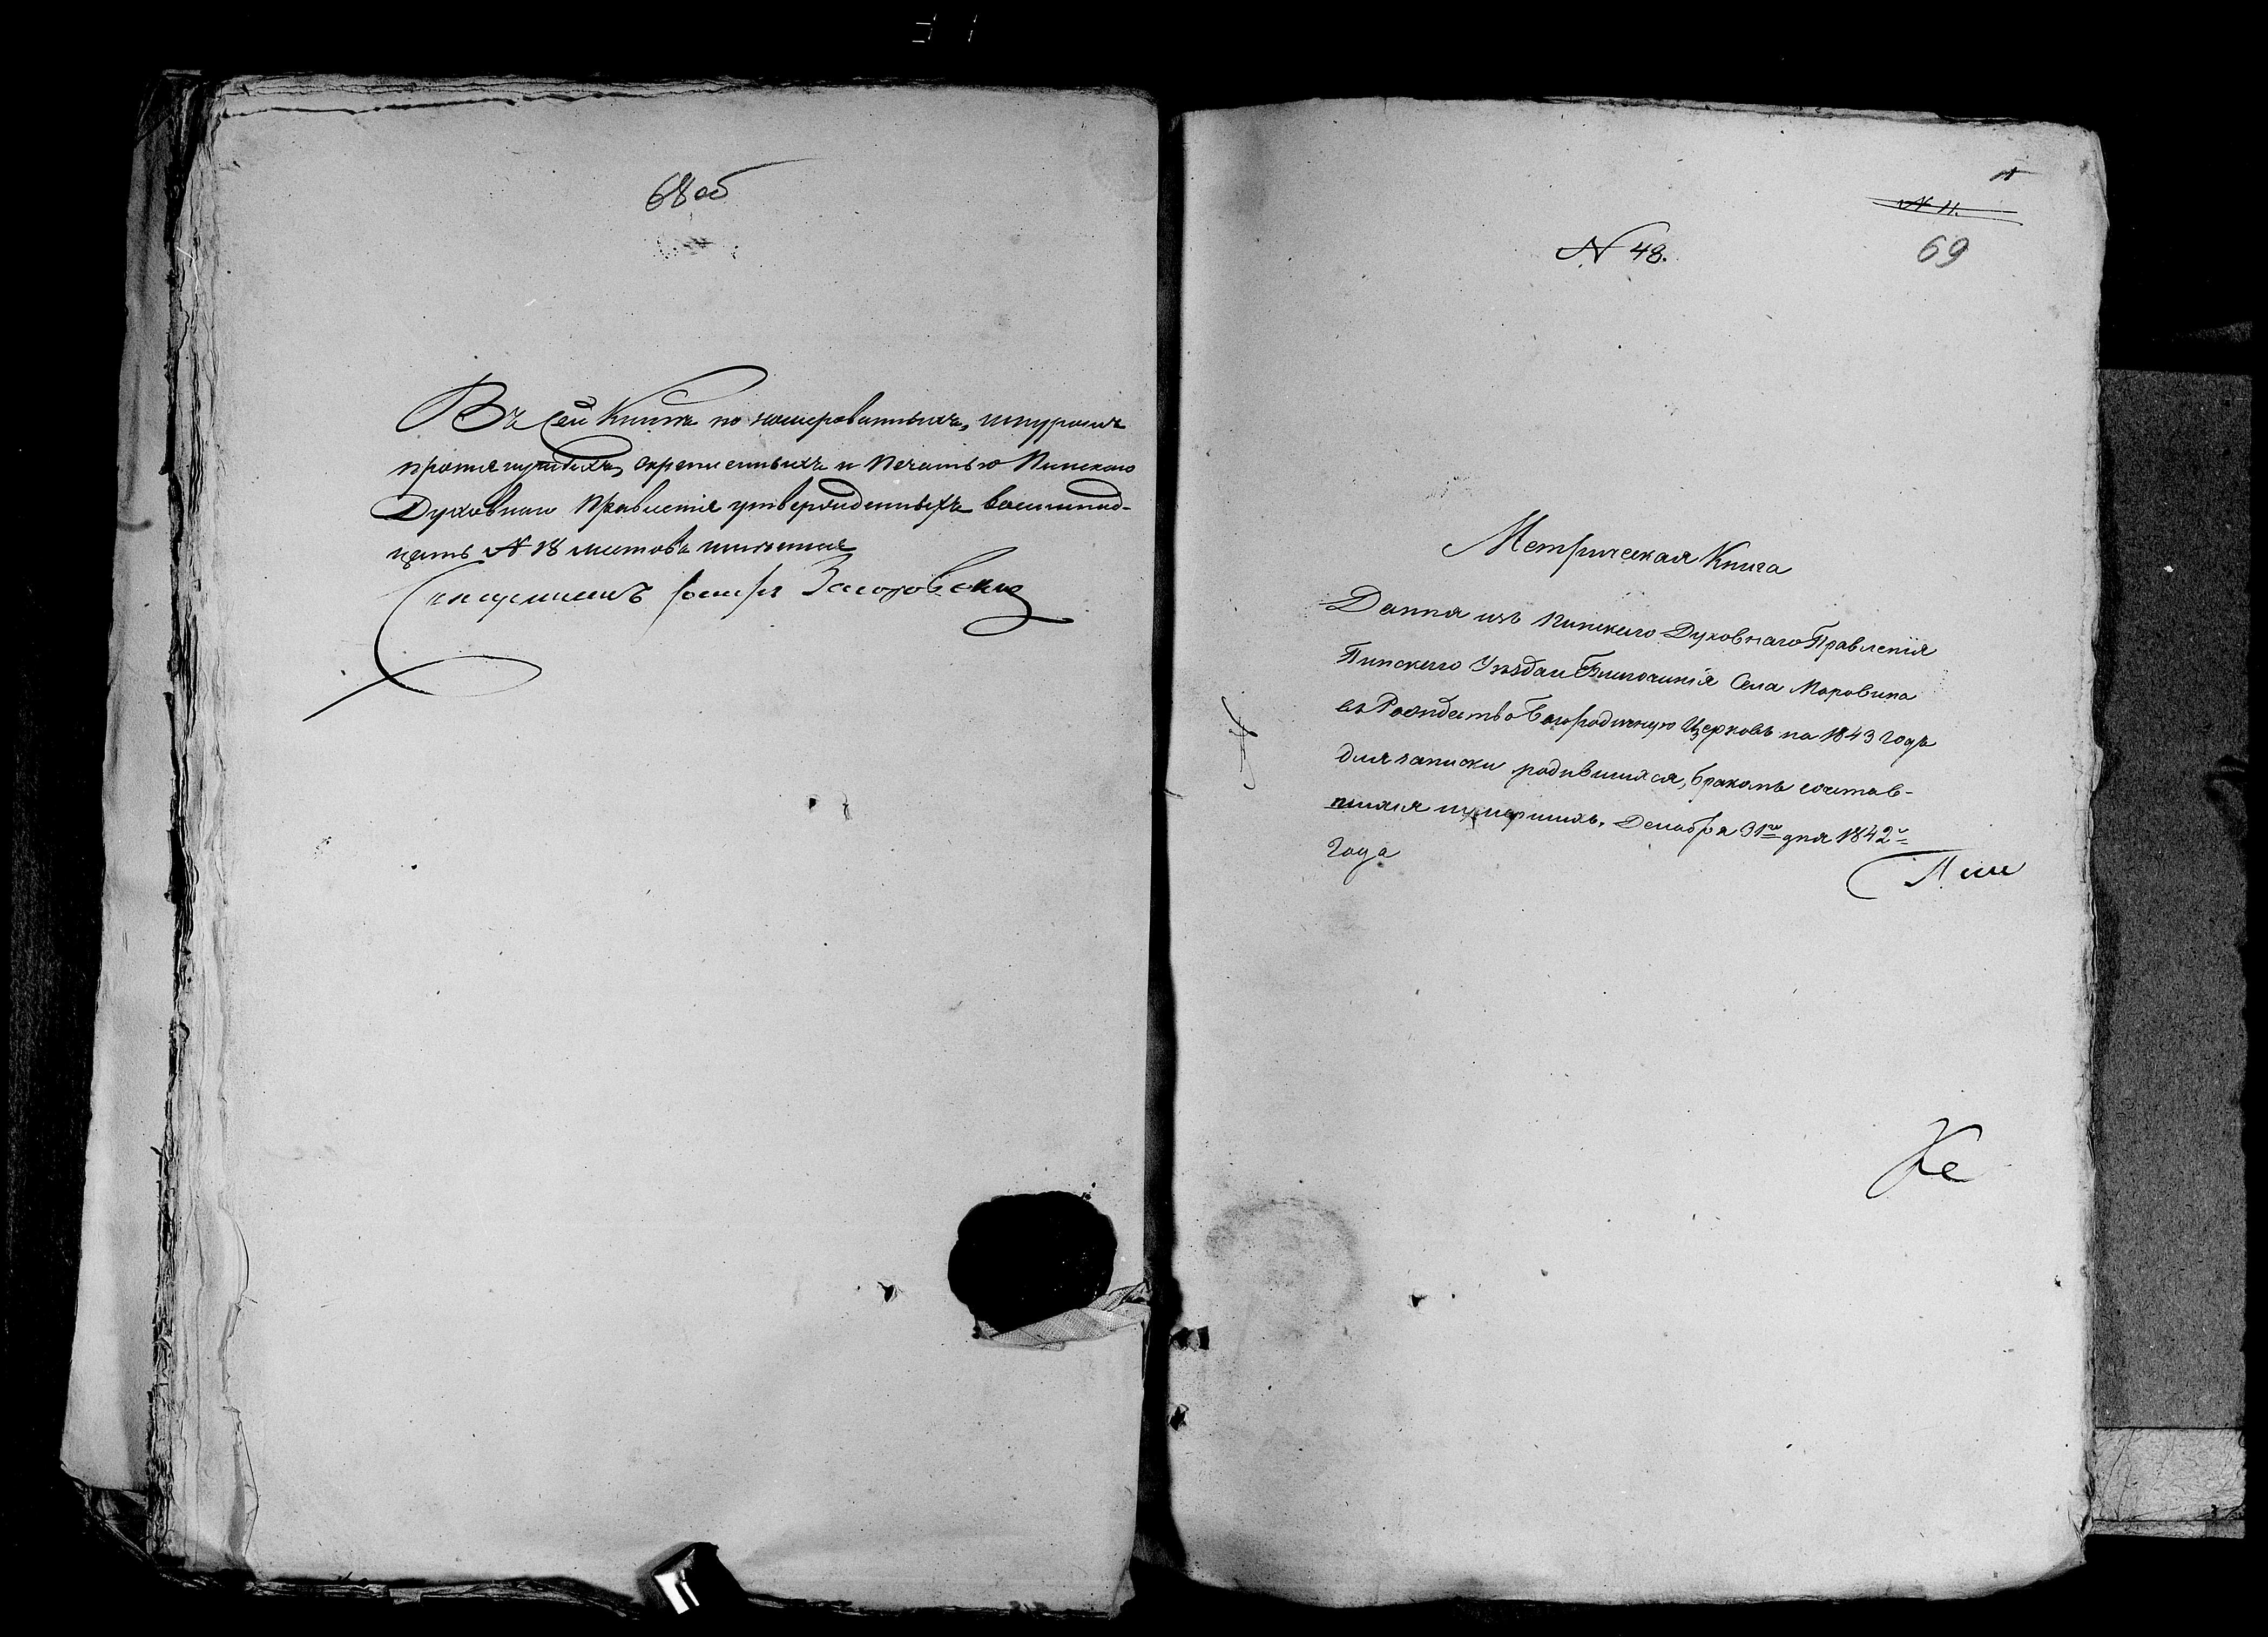 68 об
Въ сей Книгѣ по номерованныхъ, шнуромъ
протягнутыхъ, скрепленныхъ и печатью Пинскаго
Духовнаго Правленія утвержденныхъ восемнад-
цать № 18 листовъ
№ 11.
69
№ 48.
Метрическая Книга
Данна изъ Пинскаго Духовнаго Правленія
Пинскаго Уѣзда и Благочинія Села Моровина
въ Рождество Богородичную Церковь на 1843 годъ
для записки родившихся, бракомъ сочетав-
шихся и умершихъ. Декабря 31го дня 1842го
Года